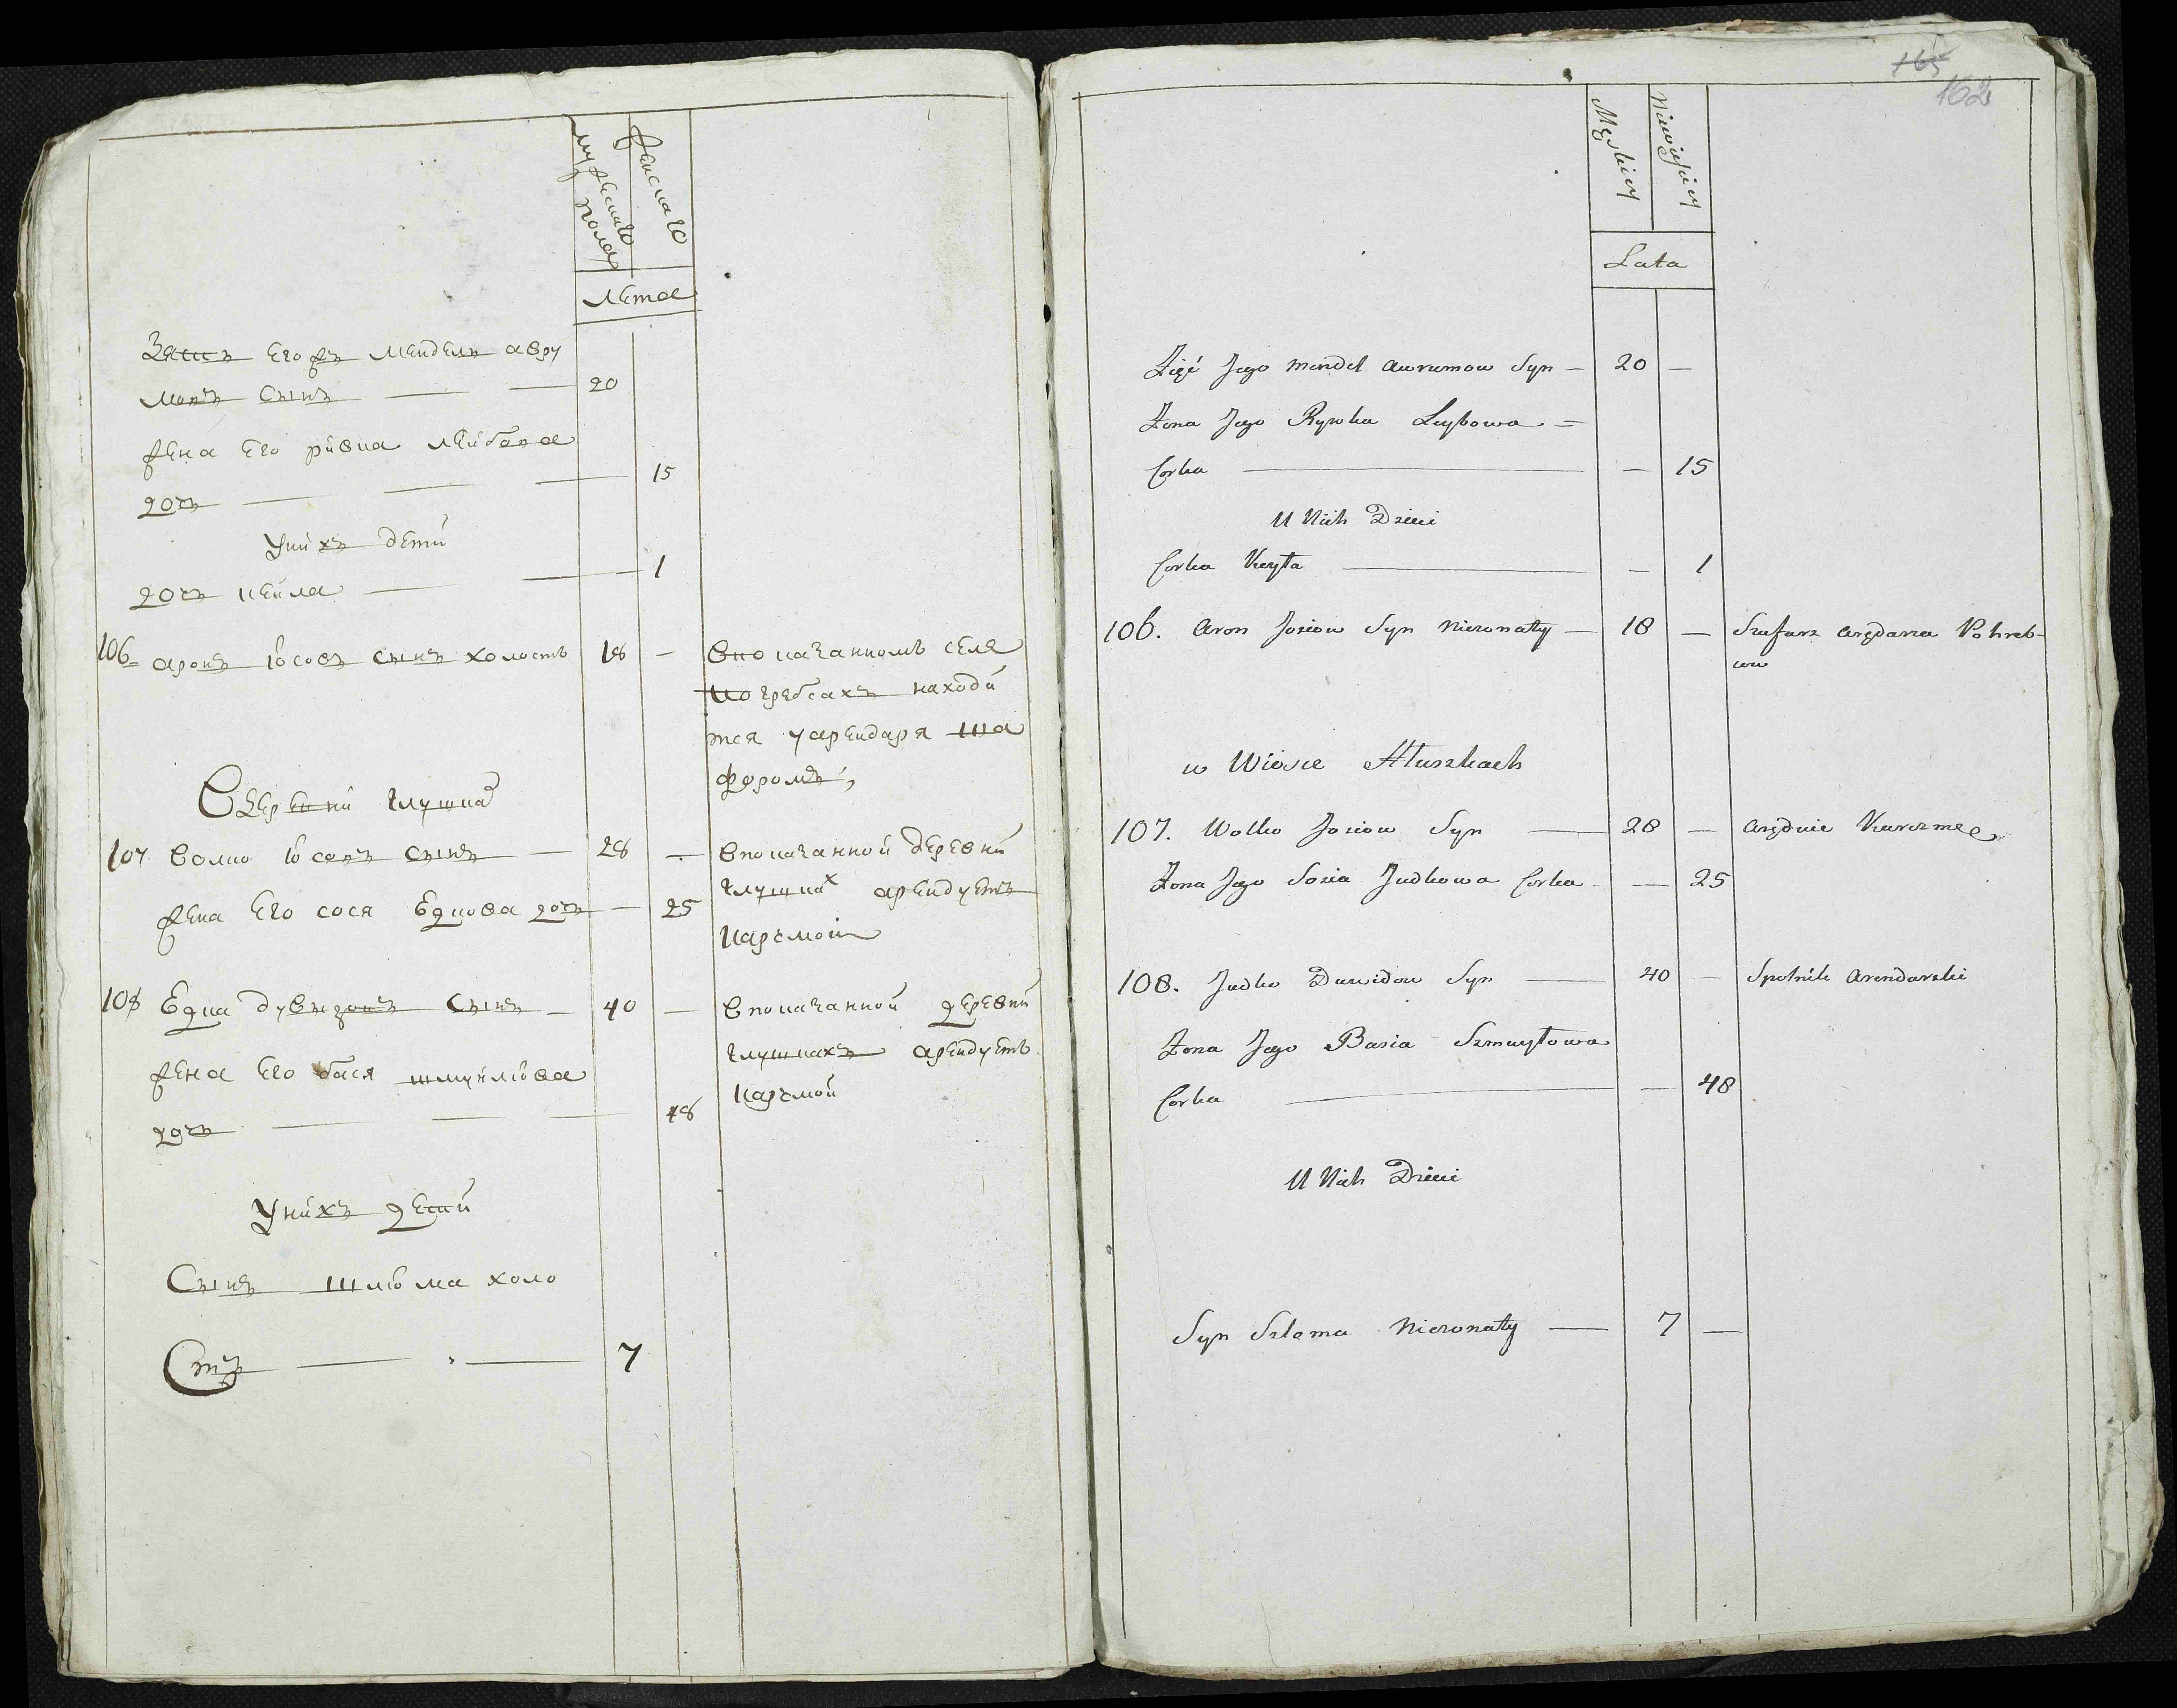 мужеска
полу
женска
лета
Зять Егожъ Мендель авру
мовъ сынъ — — 20
жена Его ривка лейбова
дочъ — — — 15
Унихъ дети
дочъ кейла — — 1
106 аронъ іосовъ сынъ холостъ 18 — впоказанномъ селе
погребсахъ находи
тся уарендаря ша
форомъ,
В деревни глушках
107 волко іосовъ сынъ — 28 — впоказанной деревни
глушках арендуетъ
жена Его сося Едкова дочъ — 25
карчмой
108 Едка дувыдовъ сынъ — 40 — впоказанной деревни
глушкахъ арендуетъ
жена Его бася шмуйліова
карчмой
дочъ — — — 48
Унихъ дети
Сынъ шліома холо
стъ — — 7
165
162
Męskiey
Niewieściey
Lata
Zięć Jego Mendel Awrumow Syn — 20 —
Zona Jego Rywka Leybowa =
Corka — — 15
U Nich Dzieci
Corka Keyła — — 1
106. Aron Josiow Syn Niezonaty — 18 — Szafarz Arędarza Pohreb-
cow
w Wiosce Hłuszkach
107. Wolko Josiow Syn — 28 — Aręduie Karczmę
Zona Jego Sosia Judkowa Corka — — 25
108. Judko Dawidow Syn — 40 — Spolnik Arendarski
Zona Jego Basia Szmuyłowa
Corka — — 48
U Nich Dzieci
Syn Szloma Niezonaty — 7 —